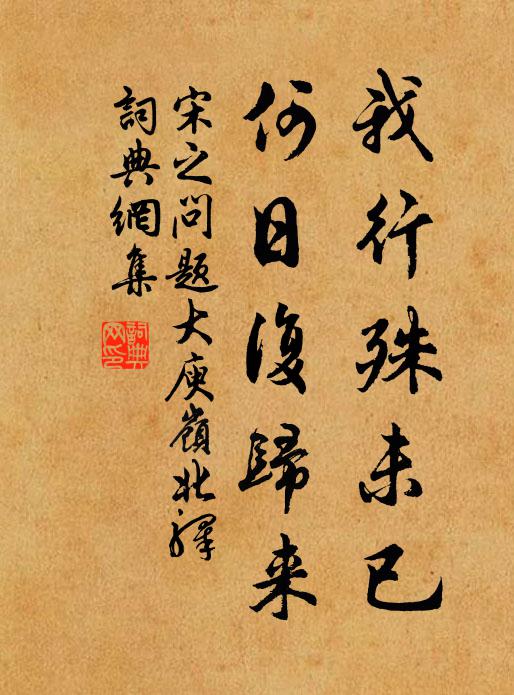 我行殊未已
何日復歸来
宋之问题大庾嶺北驛
詞典網集
詞典网印